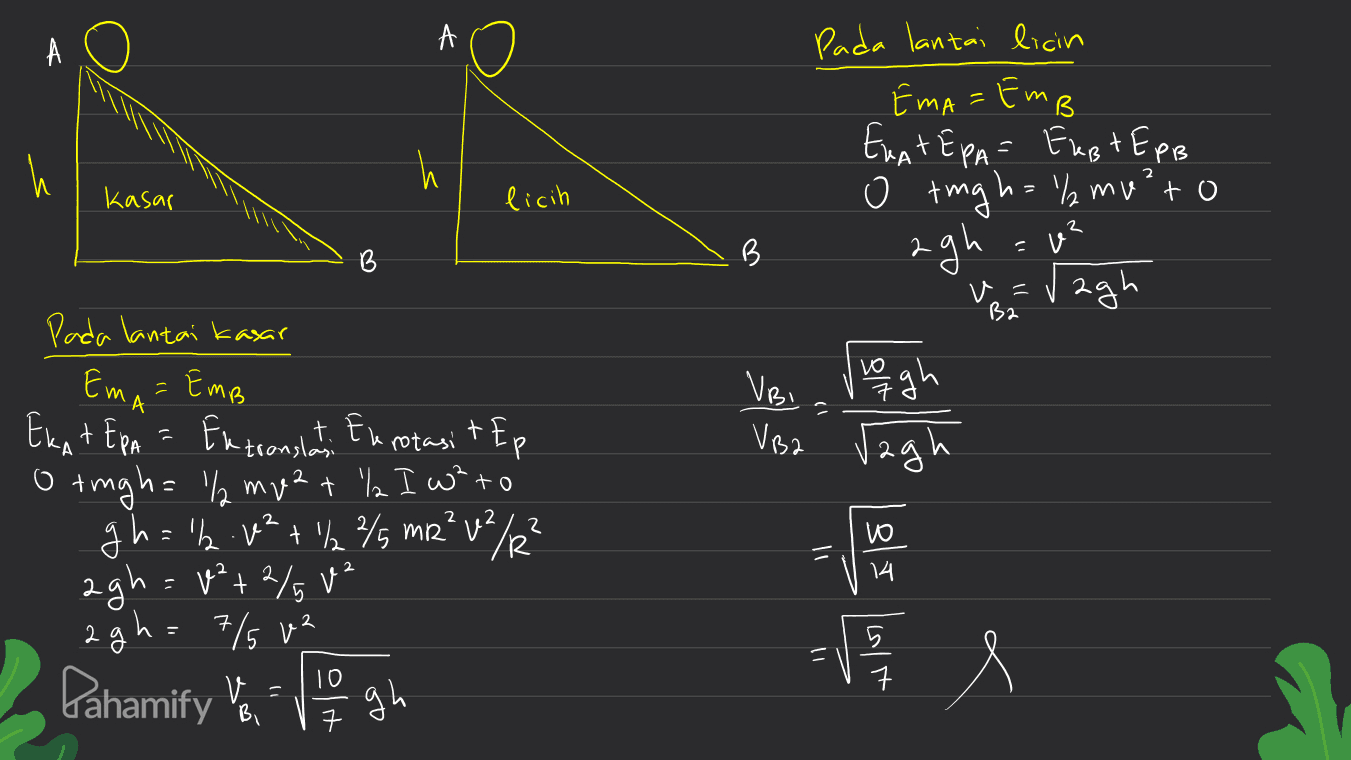 A
h
kasar
B
A
h
licin
B
Pada lantai licin
EmA = EmB
EkA + EpA = EkB + EpB
0 + mgh = 1/2 mv² + 0
2gh = v²
vB2 = √2gh
Pada lantai kasar
EmA = EmB
EkA + EpA = Ek translasi + Ek rotasi + Ep
0 + mgh = 1/2 mv² + 1/2 I ω² + 0
gh = 1/2 . v² + 1/2 2/5 mR² v²/R²
2gh = v² + 2/5 v²
2gh = 7/5 v²
vB1 = √10/7 gh
VB1/VB2 = √10/7 gh / √2gh
= √10/14
= √5/7
Pahamify